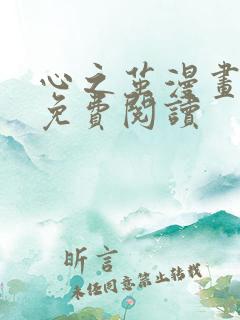 心之茧漫畫
免費閱讀
昕言
未经同意禁止转载